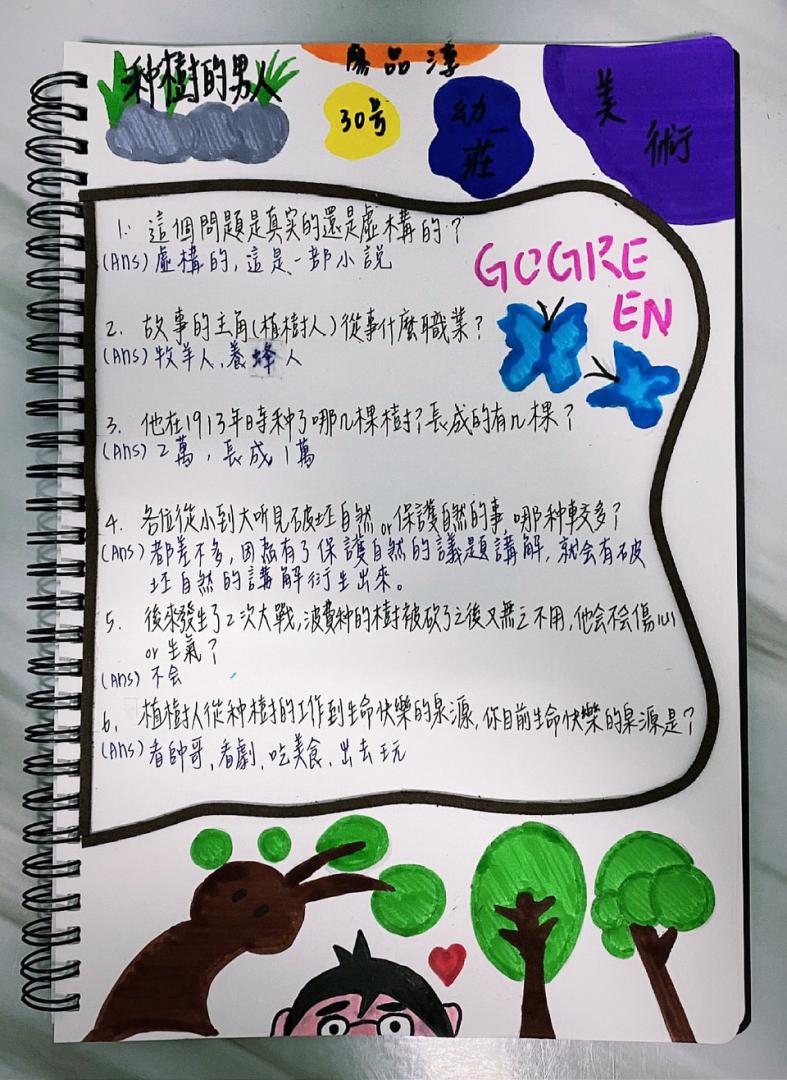 种樹的男人
品淳
30号
幼一
莊
美
術
1. 這個問題是真实的還是虛構的?
(Ans) 虛構的, 這是一部小說
GOGRE
EN
2. 故事的主角(植樹人)從事什麼職業?
(Ans) 牧羊人, 養蜂人
3. 他在1913年時种了哪几棵樹? 長成的有几棵?
(Ans) 2萬, 長成1萬
4. 各位從小到大听見破坯自然or保護自然的事, 哪种較多?
(Ans) 都差不多, 因為有了保護自然的議題講解, 就会有破
坯自然的講解衍生出來。
5. 後來發生了2次大戰, 波費种的樹被砍了之後又無之不用, 他会不会傷心
or 生氣?
(Ans) 不会
6. 植樹人從种樹的工作到生命快樂的泉源, 你目前生命快樂的泉源是?
(Ans) 看帥哥, 看劇, 吃美食, 出去玩